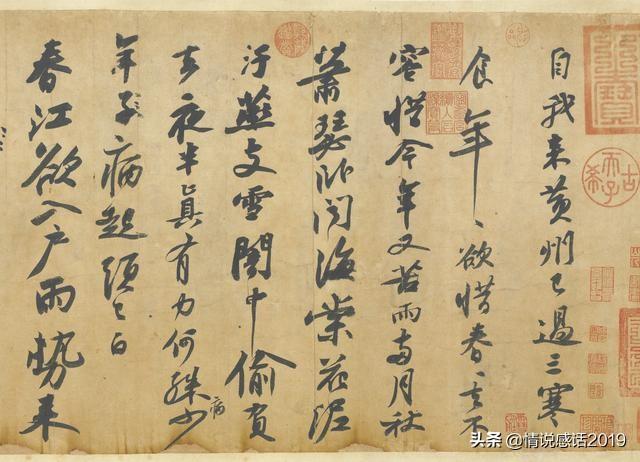 自我来黄州已過三寒
食年〻欲惜春〻去不
容惜今年又苦雨兩月秋
蕭瑟卧聞海棠花泥
汙燕支雪闇中偷負
去夜半真有力何殊少病
年子病起頭已白
春江欲入戶雨勢来
古希天子
头条 @情说感话2019